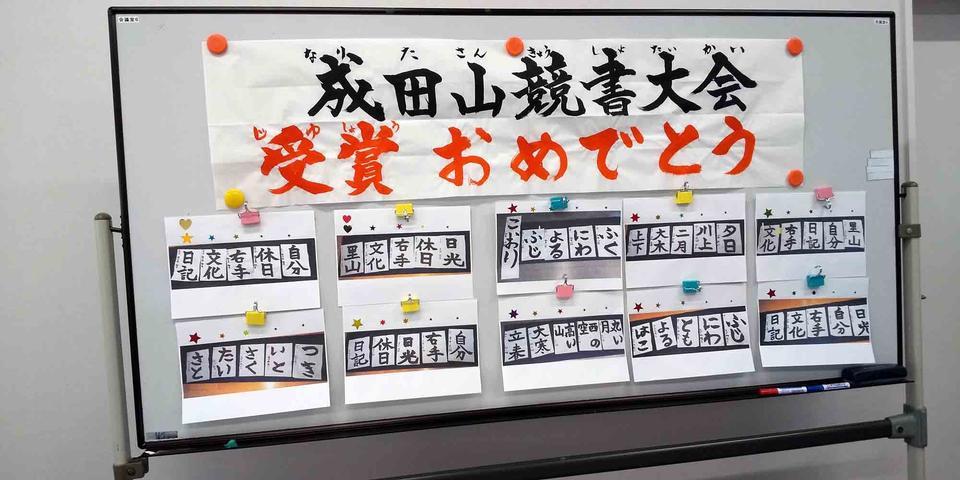 なりたさんきょうしょたいかい
成田山競書大会
じゅしょう
受賞 おめでとう
日記 文化 右手 休日 自分
里山 文化 右手 休日 日光
こおり ふじ よる にわ ふく
上下 大木 二月 川上 夕日
文化 右手 日記 自分 里山
さと たい さく いと つき
日記 休日 日光 右手 自分
立春 大寒 高い山 西の空 丸い月
はこ よる とも にわ ふじ
日記 文化 右手 自分 日光